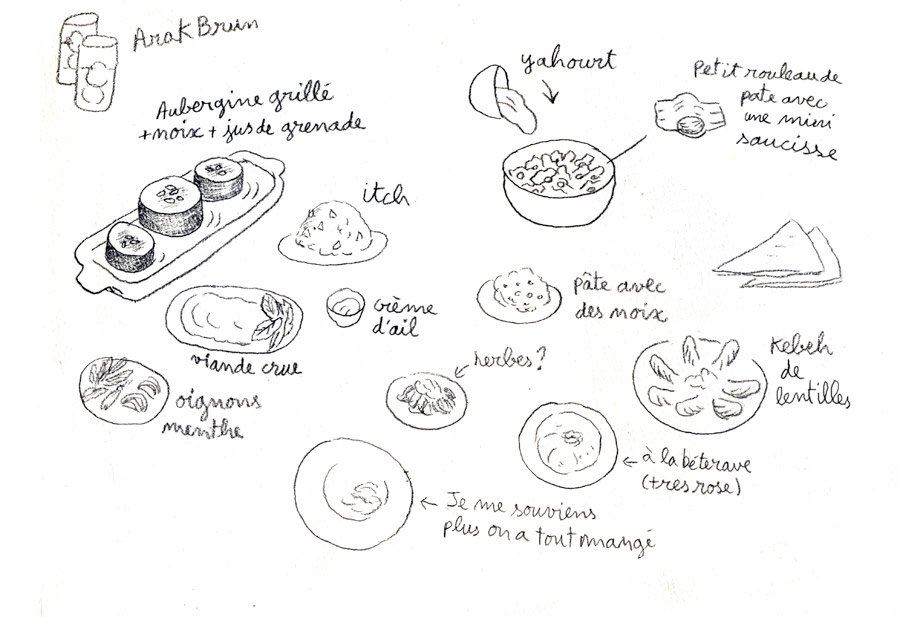 Arak Brun
Aubergine grillé
+ noix + jus de grenade
itch
viande crue
crème
d'ail
oignons
menthe
yahourt
Petit rouleau de
pate avec
une mini
saucisse
pâte avec
des noix
herbes?
Kebeh
de
lentilles
à la béterave
(tres rose)
Je me souviens
plus on a tout mangé